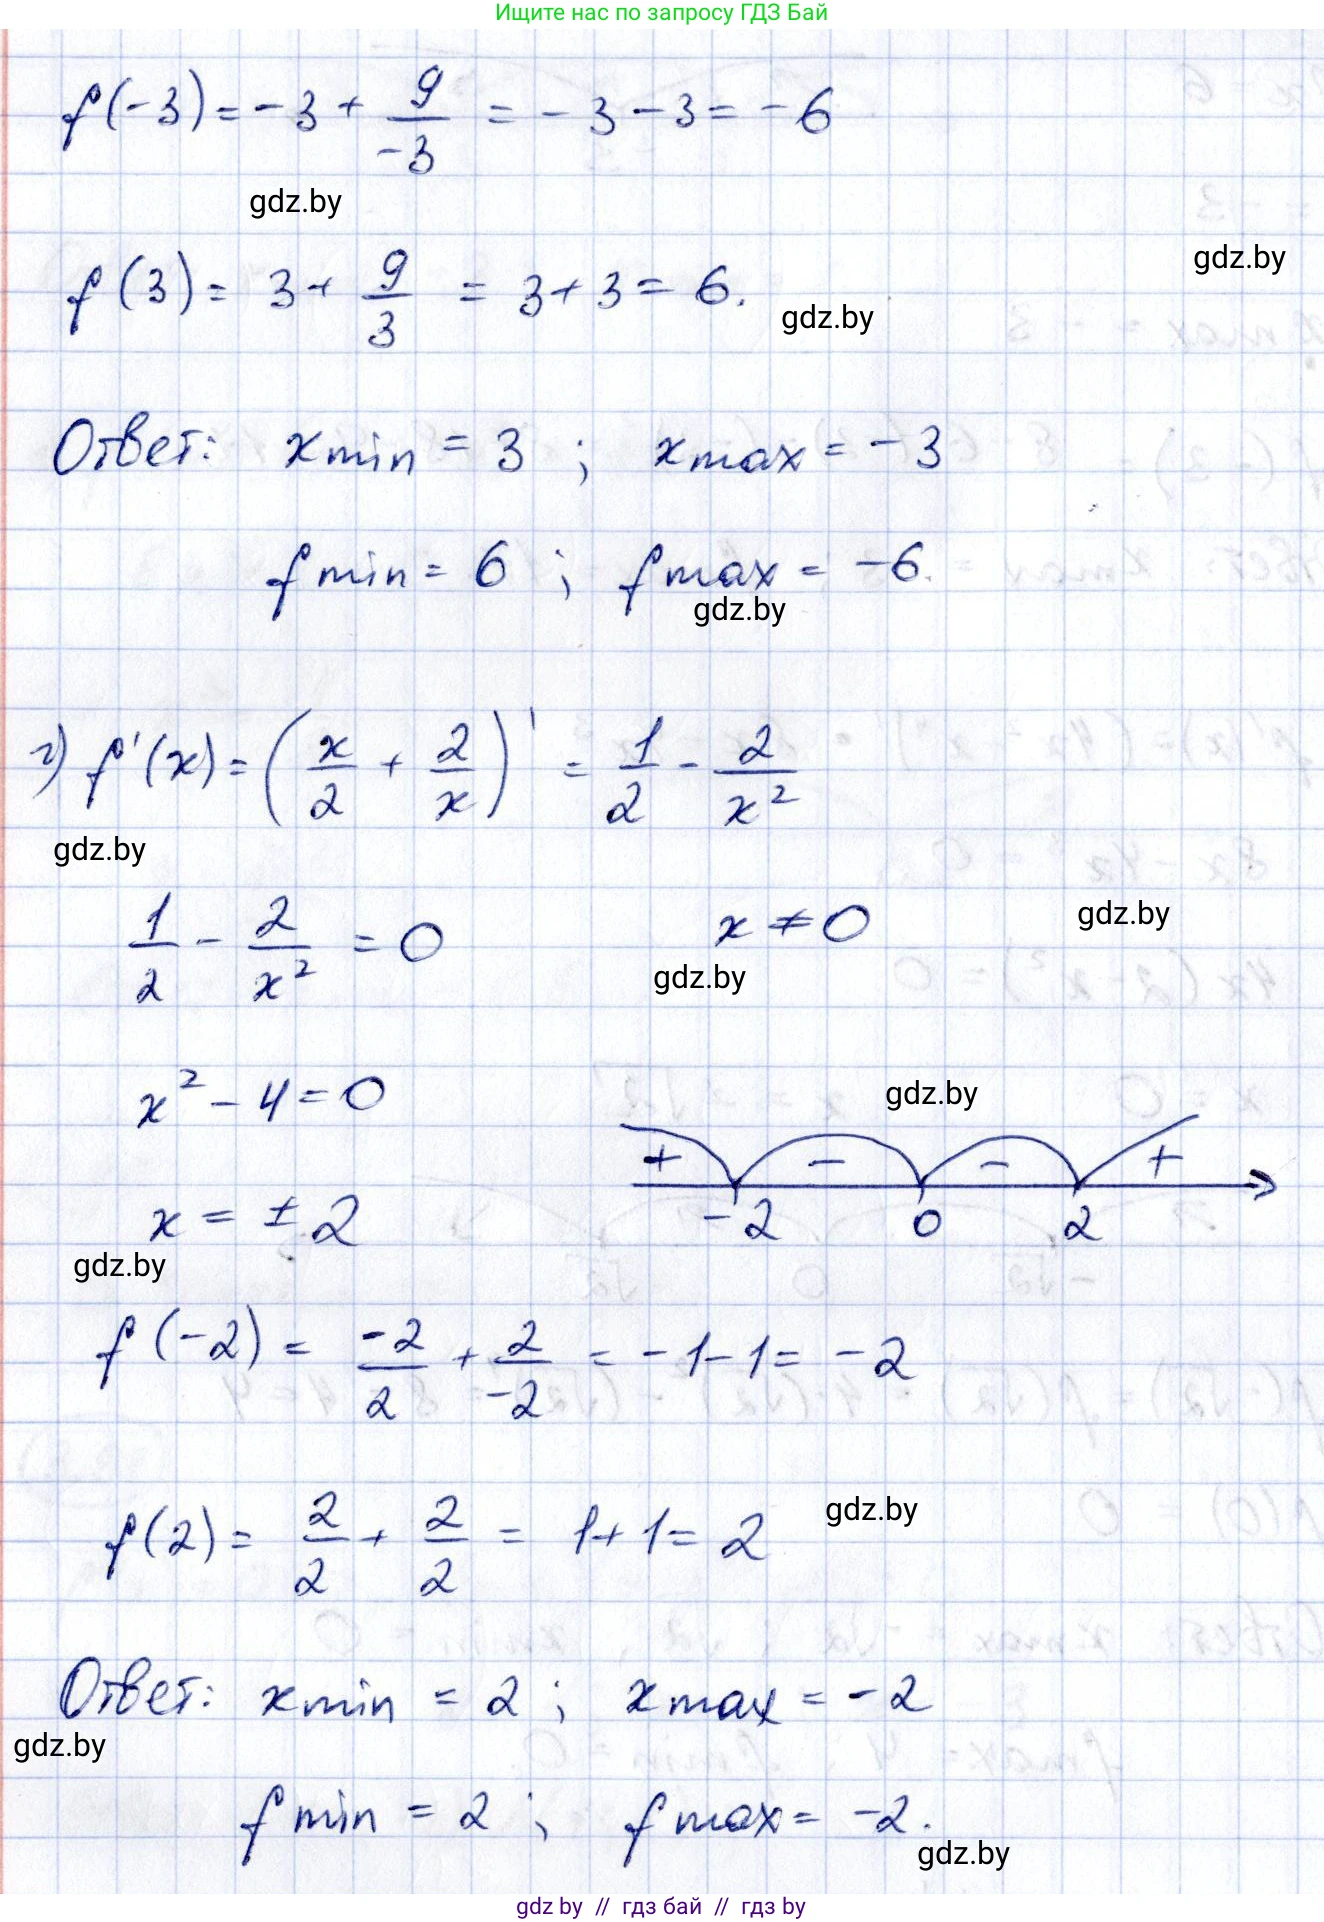 Ищите нас по запросу ГДЗ Бай
f(-3) = -3 + 9/-3 = -3 - 3 = -6
gdz.by
gdz.by
f(3) = 3 + 9/3 = 3 + 3 = 6.
gdz.by
Ответ: xmin = 3 ; xmax = -3
fmin = 6 ; fmax = -6.
gdz.by
г) f'(x) = (x/2 + 2/x)' = 1/2 - 2/x²
gdz.by
1/2 - 2/x² = 0 x ≠ 0
gdz.by
gdz.by
x² - 4 = 0
gdz.by
+ - - +
-2 0 2
x = ± 2
gdz.by
f(-2) = -2/2 + 2/-2 = -1 - 1 = -2
f(2) = 2/2 + 2/2 = 1 + 1 = 2
gdz.by
Ответ: xmin = 2 ; xmax = -2
gdz.by
fmin = 2 ; fmax = -2.
gdz.by
gdz by // гдз бай // gdz by